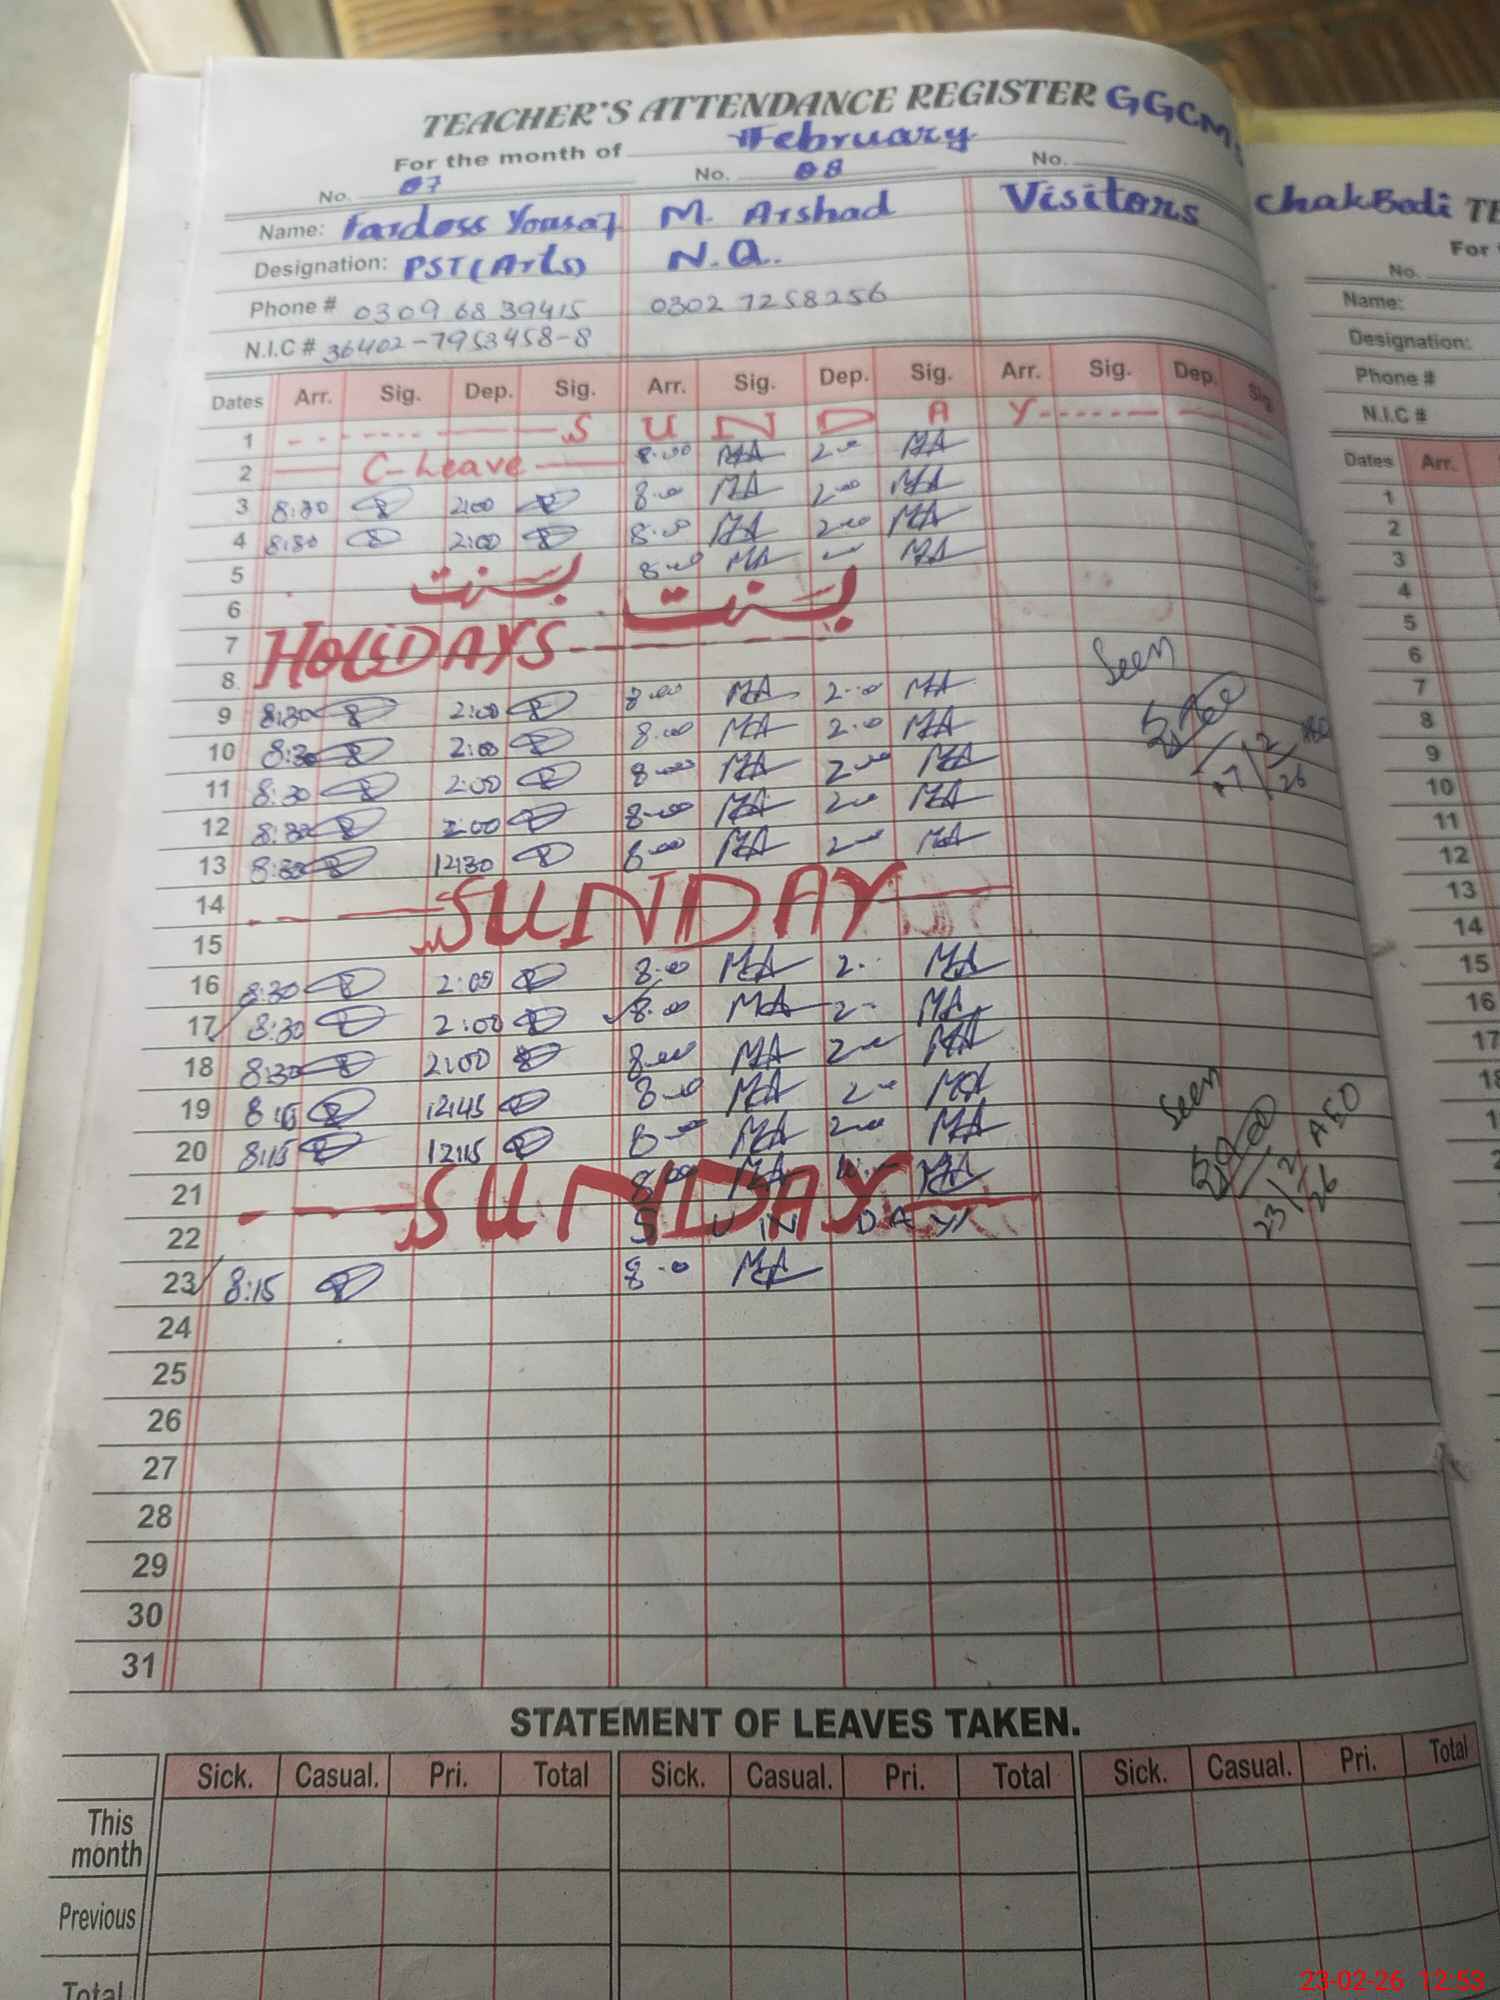 TEACHER'S ATTENDANCE REGISTER GGCM
For the month of February
No. 07 No. 08 No.
Name: Fardoss Yousaf M. Arshad Visitors
Designation: PST (Arts) N.Q.
Phone # 0309 6839415 0302 7258256
N.I.C # 36402-7953458-8
Dates Arr. Sig. Dep. Sig. Arr. Sig. Dep. Sig. Arr. Sig. Dep. Sig
1 S U N D A Y
2 C-Leave 8:00 MA 2-00 MA
3 8:30 2:00 8-00 MA 2-00 MA
4 8:30 2:00 8:00 MA 2-00 MA
5 بسنت 8-00 MA MA
6 بسنت
7 HOLIDAYS
8 Seen
9 8:30 2:00 8-00 MA 2-00 MA
10 8:30 2:00 8-00 MA 2-00 MA 17/2/26
11 8:30 2:00 8-00 MA 2-00 MA
12 8:30 2:00 8-00 MA 2-00 MA
13 8:30 12:30 8-00 MA 2-00 MA
14 SUNDAY
15
16 8:30 2:00 8-00 MA 2- MA
17 8:30 2:00 8-00 MA 2- MA
18 8:30 2:00 8-00 MA 2-00 MA
19 8:15 12:45 8-00 MA 2-00 MA Seen
20 8:15 12:15 8-00 MA 2-00 MA AEO
21 SUNDAY 8:00 MA MA 23/2/26
22 S U N D A Y
23 8:15 8-0 MA
24
25
26
27
28
29
30
31
STATEMENT OF LEAVES TAKEN.
Sick. Casual. Pri. Total Sick. Casual. Pri. Total Sick. Casual. Pri. Total
This month
Previous
Total
ChakBodi TE
For
No.
Name:
Designation:
Phone #
N.I.C #
Dates Arr.
1
2
3
4
5
6
7
8
9
10
11
12
13
14
15
16
17
23-02-26 12:53